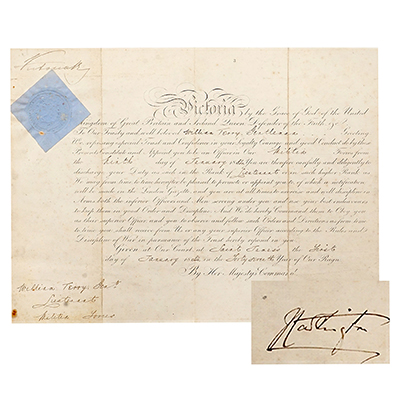 Victoria
by the Grace of God of the United
Kingdom of Great Britain and Ireland, Queen, Defender of the Faith, &c
To Our Trusty and well beloved William Terry, Gentleman Greeting
We, reposing especial Trust and Confidence in your Loyalty, Courage and good Conduct, do by these
Presents Constitute and Appoint you to be an Officer in Our Militia Forces from
the day of January You are therefore carefully and diligently to
discharge your Duty as such in the Rank of Lieutenant or in such higher Rank as
We may from time to time hereafter be pleased to promote or appoint you to, of which a notification
will be made in the London Gazette, and you are at all times to exercise and well discipline in
Arms both the inferior Officers and Men serving under you and use your best endeavours
to keep them in good Order and Discipline. And We do hereby Command them to Obey you
as their superior Officer, and you to observe and follow such Orders and Directions as from time
to time you shall receive from Us or any your superior Officer according to the Rules and
Discipline of War in pursuance of the Trust hereby reposed in you.
Given at Our Court at Saint James's the
day of January in the Year of Our Reign
By Her Majesty's Command
William Terry, Gent
Lieutenant
Militia Forces
Hartington